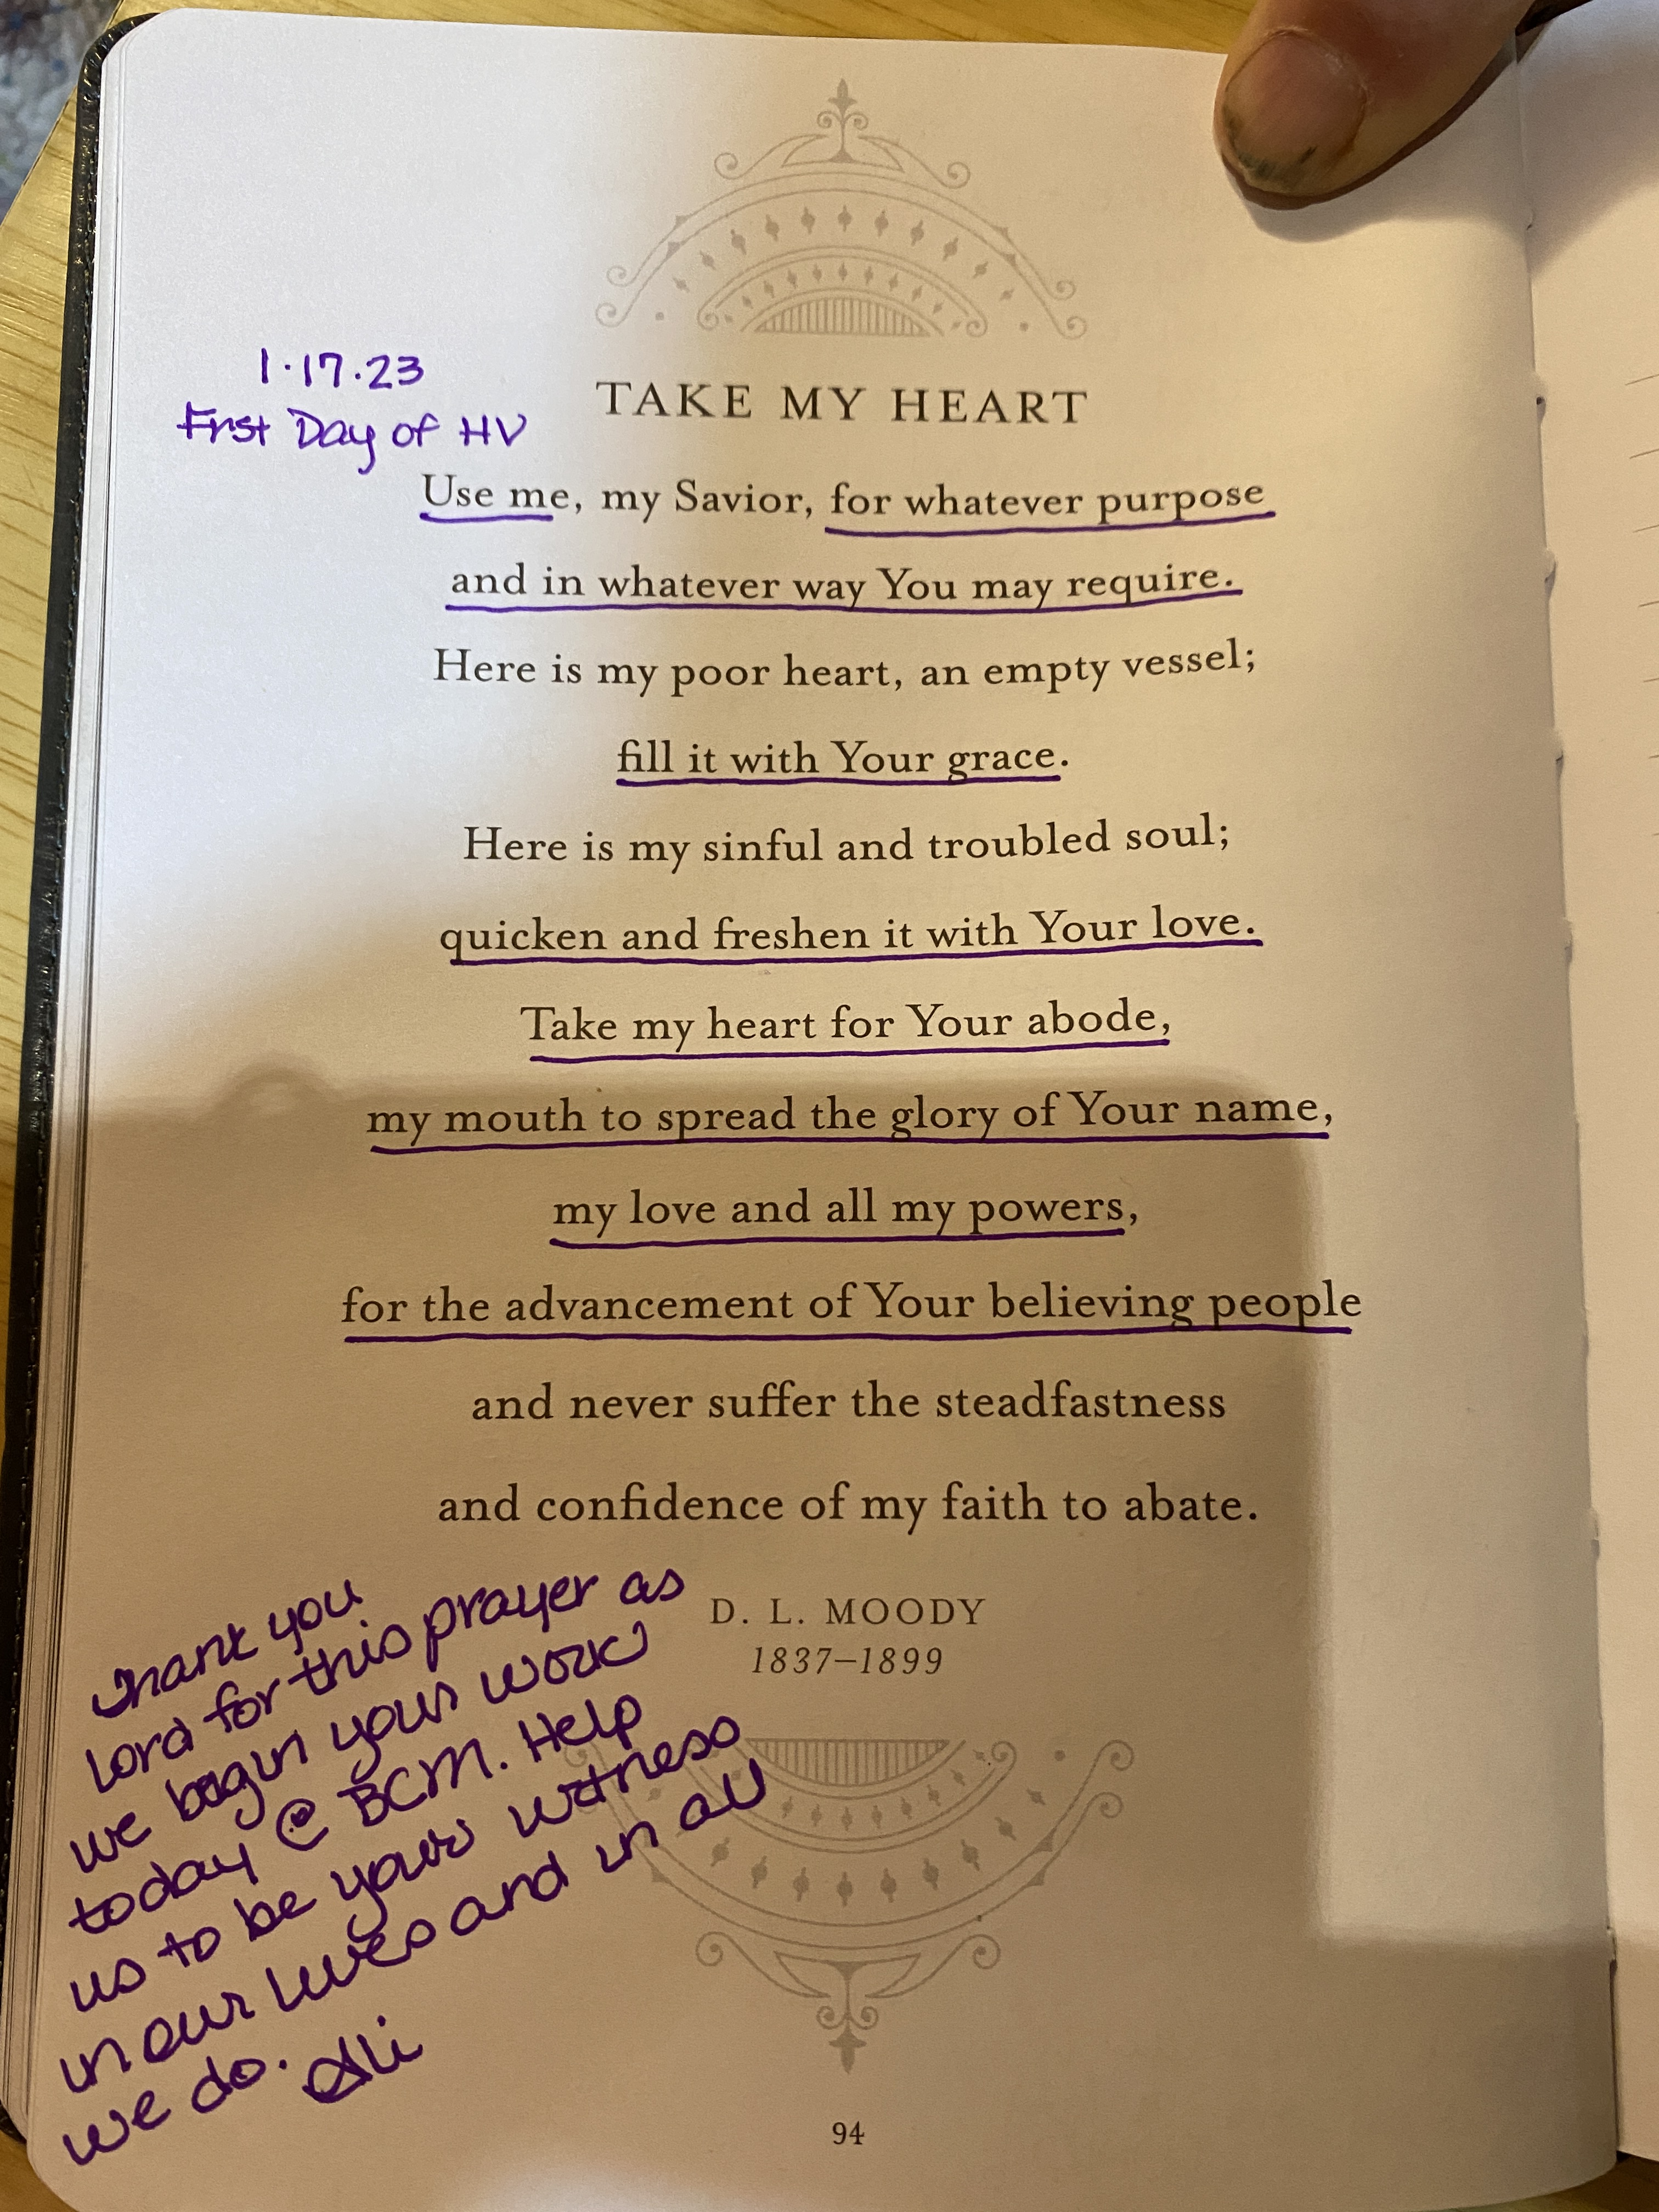 1.17.23
First Day of HV
TAKE MY HEART
Use me, my Savior, for whatever purpose
and in whatever way You may require.
Here is my poor heart, an empty vessel;
fill it with Your grace.
Here is my sinful and troubled soul;
quicken and freshen it with Your love.
Take my heart for Your abode,
my mouth to spread the glory of Your name,
my love and all my powers,
for the advancement of Your believing people
and never suffer the steadfastness
and confidence of my faith to abate.
D. L. MOODY
1837–1899
Thank you
Lord for this prayer as
we begin your work
today @ BCM. Help
us to be your witness
in our lives and in all
we do.
94